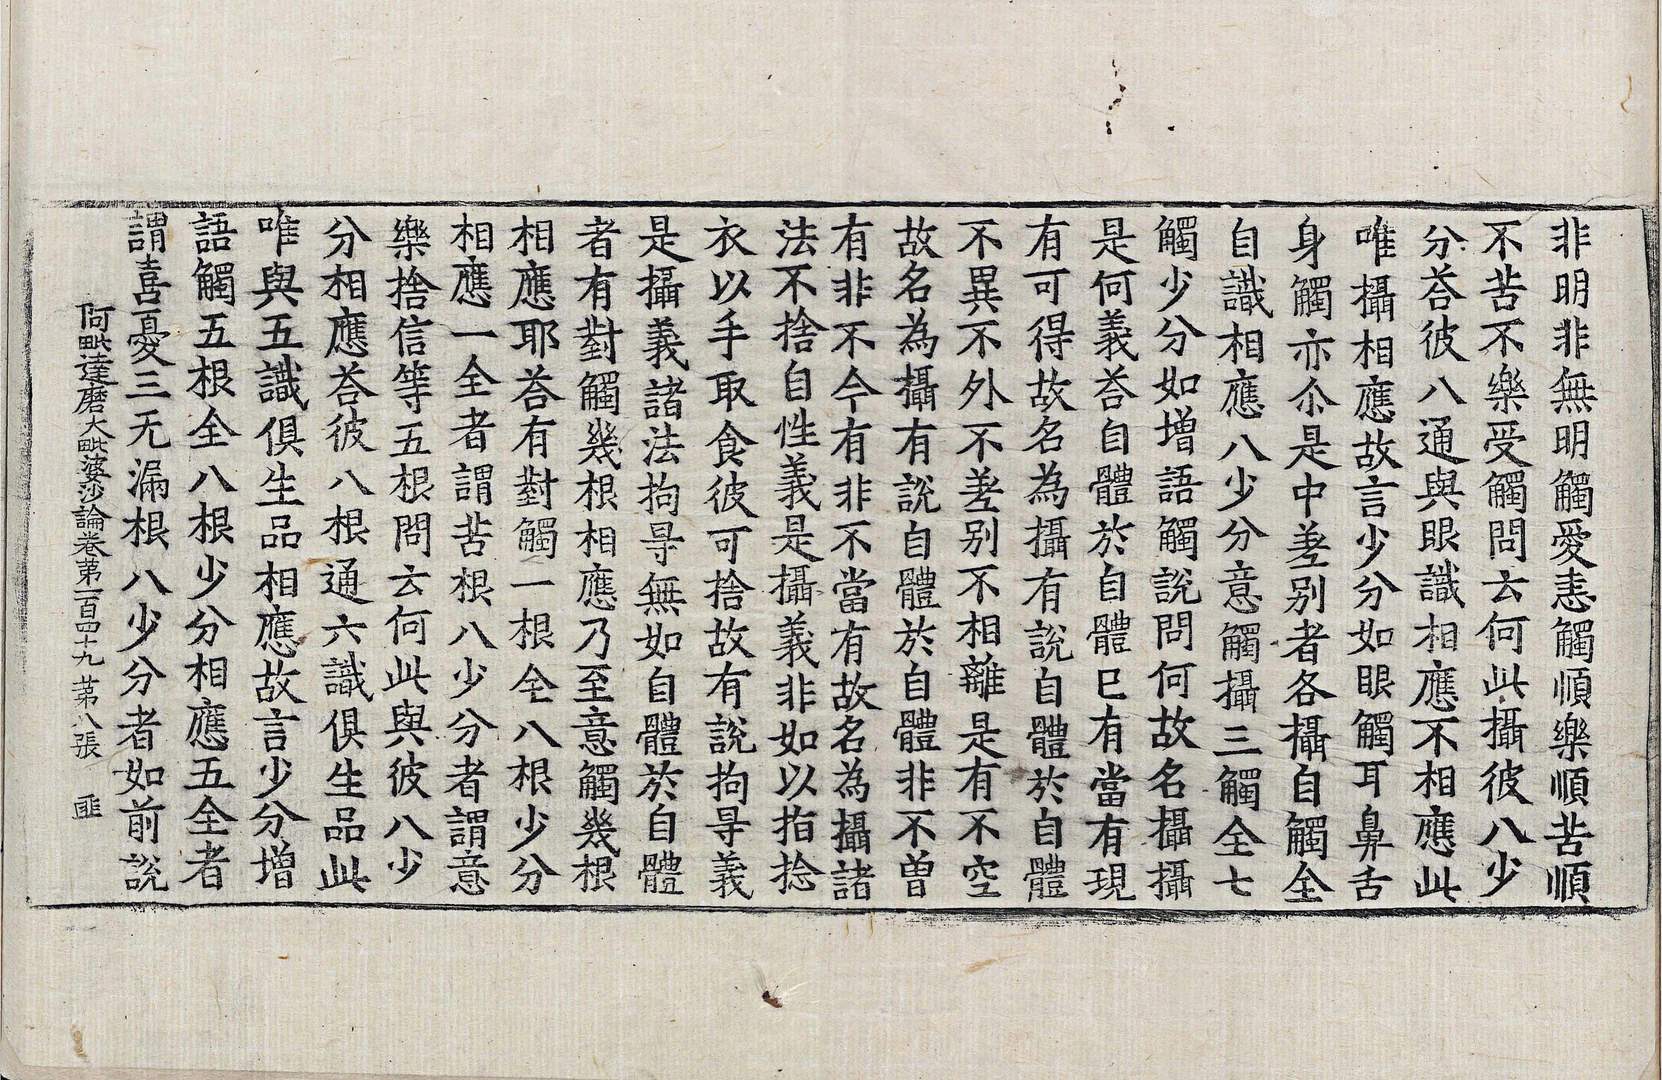 非明非無明觸愛恚觸順樂順苦順
不苦不樂受觸問云何此攝彼八少
分荅彼八通與眼識相應不相應此
唯攝相應故言少分如眼觸耳鼻舌
身觸亦尒是中差别者各攝自觸全
自識相應八少分意觸攝三觸全七
觸少分如增語觸說問何故名攝攝
是何義荅自體於自體巳有當有現
有可得故名為攝有說自體於自體
不異不外不差别不相離是有不空
故名為攝有說自體於自體非不曾
有非不今有非不當有故名為攝諸
法不捨自性義是攝義非如以指捻
衣以手取食彼可捨故有說拘㝵義
是攝義諸法拘㝵無如自體於自體
者有對觸幾根相應乃至意觸幾根
相應耶荅有對觸一根全八根少分
相應一全者謂苦根八少分者謂意
樂捨信等五根問云何此與彼八少
分相應荅彼八根通六識俱生品此
唯與五識俱生品相應故言少分增
語觸五根全八根少分相應五全者
謂喜憂三无漏根八少分者如前說
阿毗達磨大毗婆沙論卷第一百四十九 第八張 匪